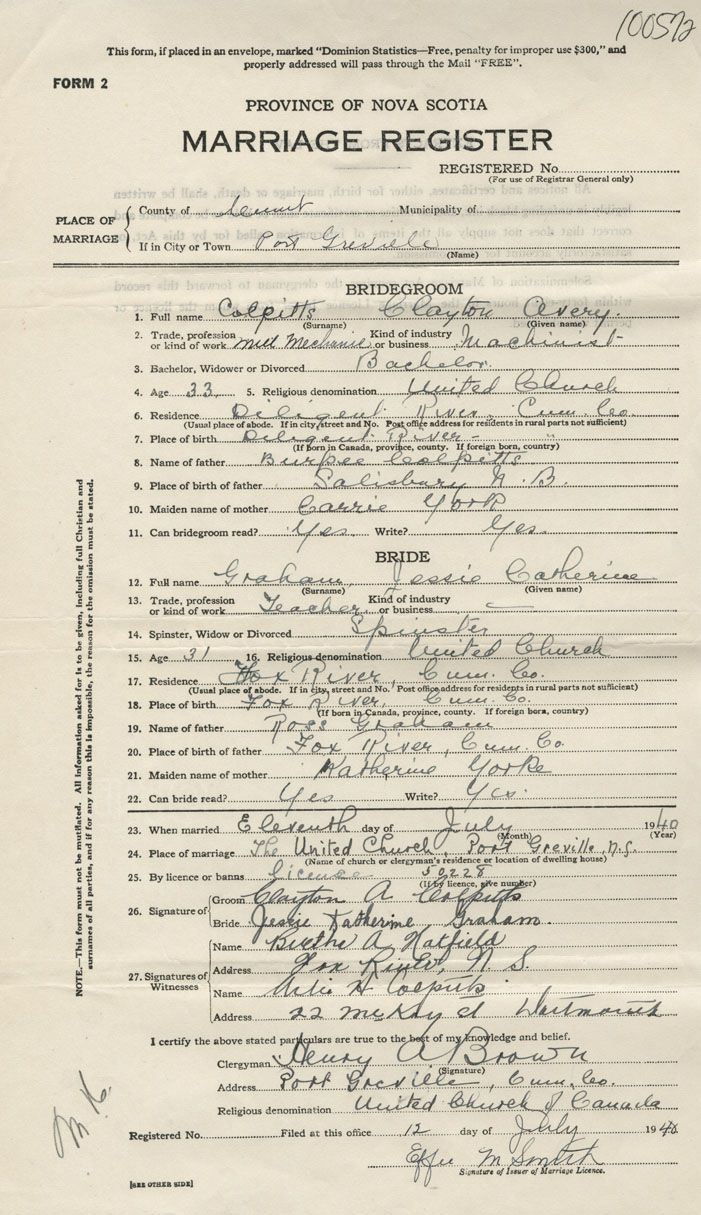 100572
This form, if placed in an envelope, marked "Dominion Statistics—Free, penalty for improper use $300," and
properly addressed will pass through the Mail "FREE".
FORM 2
PROVINCE OF NOVA SCOTIA
MARRIAGE REGISTER
REGISTERED No.
(For use of Registrar General only)
PLACE OF MARRIAGE
County of Municipality of
If in City or Town Port Greville
(Name)
BRIDEGROOM
1. Full name Colpitts Clayton Avery.
(Surname) (Given name)
2. Trade, profession or kind of work mill mechanic Kind of industry or business Machinist
3. Bachelor, Widower or Divorced Bachelor.
4. Age 33. 5. Religious denomination United Church
6. Residence Diligent River, Cum. Co.
(Usual place of abode. If in city, street and No. Post office address for residents in rural parts not sufficient)
7. Place of birth Diligent River - "
(If born in Canada, province, county. If foreign born, country)
8. Name of father Burpee Colpitts
9. Place of birth of father Salisbury N.B.
10. Maiden name of mother Carrie York
11. Can bridegroom read? Yes Write? Yes.
BRIDE
12. Full name Graham, Jessie Catherine
(Surname) (Given name)
13. Trade, profession or kind of work Teacher Kind of industry or business —
14. Spinster, Widow or Divorced Spinster
15. Age 31 16. Religious denomination United Church
17. Residence Fox River, Cum. Co.
(Usual place of abode. If in city, street and No. Post office address for residents in rural parts not sufficient)
18. Place of birth Fox River, Cum. Co.
(If born in Canada, province, county. If foreign born, country)
19. Name of father Ross Graham
20. Place of birth of father Fox River, Cum. Co.
21. Maiden name of mother Katherine Yorke
22. Can bride read? Yes Write? Yes.
23. When married Eleventh day of July 1940
(Month) (Year)
24. Place of marriage The United Church, Port Greville, N.S.
(Name of church or clergyman's residence or location of dwelling house)
25. By licence or banns License 50228
(If by licence, give number)
26. Signature of
Groom Clayton A Colpitts
Bride Jessie Katherine Graham.
27. Signatures of Witnesses
Name A Hatfield
Address Fox River, N.S.
Name H Colpitts
Address 22 McKay st Dartmouth
I certify the above stated particulars are true to the best of my knowledge and belief.
Clergyman Henry A Brown
(Signature)
Address Port Greville, Cum. Co.
Religious denomination United Church of Canada
Registered No. Filed at this office 12 day of July 1940
Effie M Smith
Signature of Issuer of Marriage Licence.
[SEE OTHER SIDE]
NOTE.—This form must not be mutilated. All information asked for is to be given, including full Christian and
surnames of all parties, and if for any reason this is impossible, the reason for the omission must be stated.